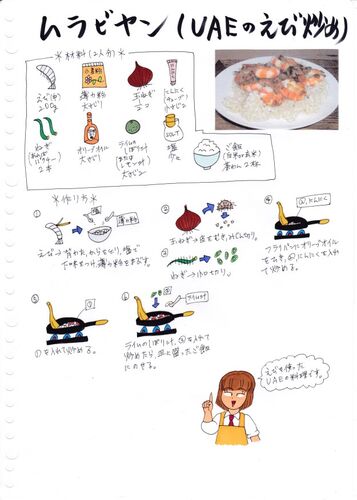 ムラビヤン(UAEのえび炒め)
*材料(2人分)*
えび(中)
200g
小麦粉
薄力粉
大さじ2
玉ねぎ
2コ
にんにく
(チューブ)
小さじ2
ねぎ
2本
オリーブオイル
大さじ1
ライムの
しぼり汁
(または
レモン汁)
大さじ2
SALT
塩
少々
ご飯
(白米or玄米)
茶わん2杯
*作り方*
①
塩
薄力粉
えび→背わた、からをとり、塩で
下味をつけ、薄力粉をまぶす。
②
玉ねぎ→皮をむき、みじん切り。
③
ねぎ→小口切り。
④
フライパンにオリーブオイル
をひき、②、にんにくを入れ
て炒める。
⑤
①
①を入れて炒める。
⑥
ライム汁
ライムのしぼり汁、③を入れて
炒めたら、皿に盛ったご飯
にのせる。
えびを使った
UAEの料理です。